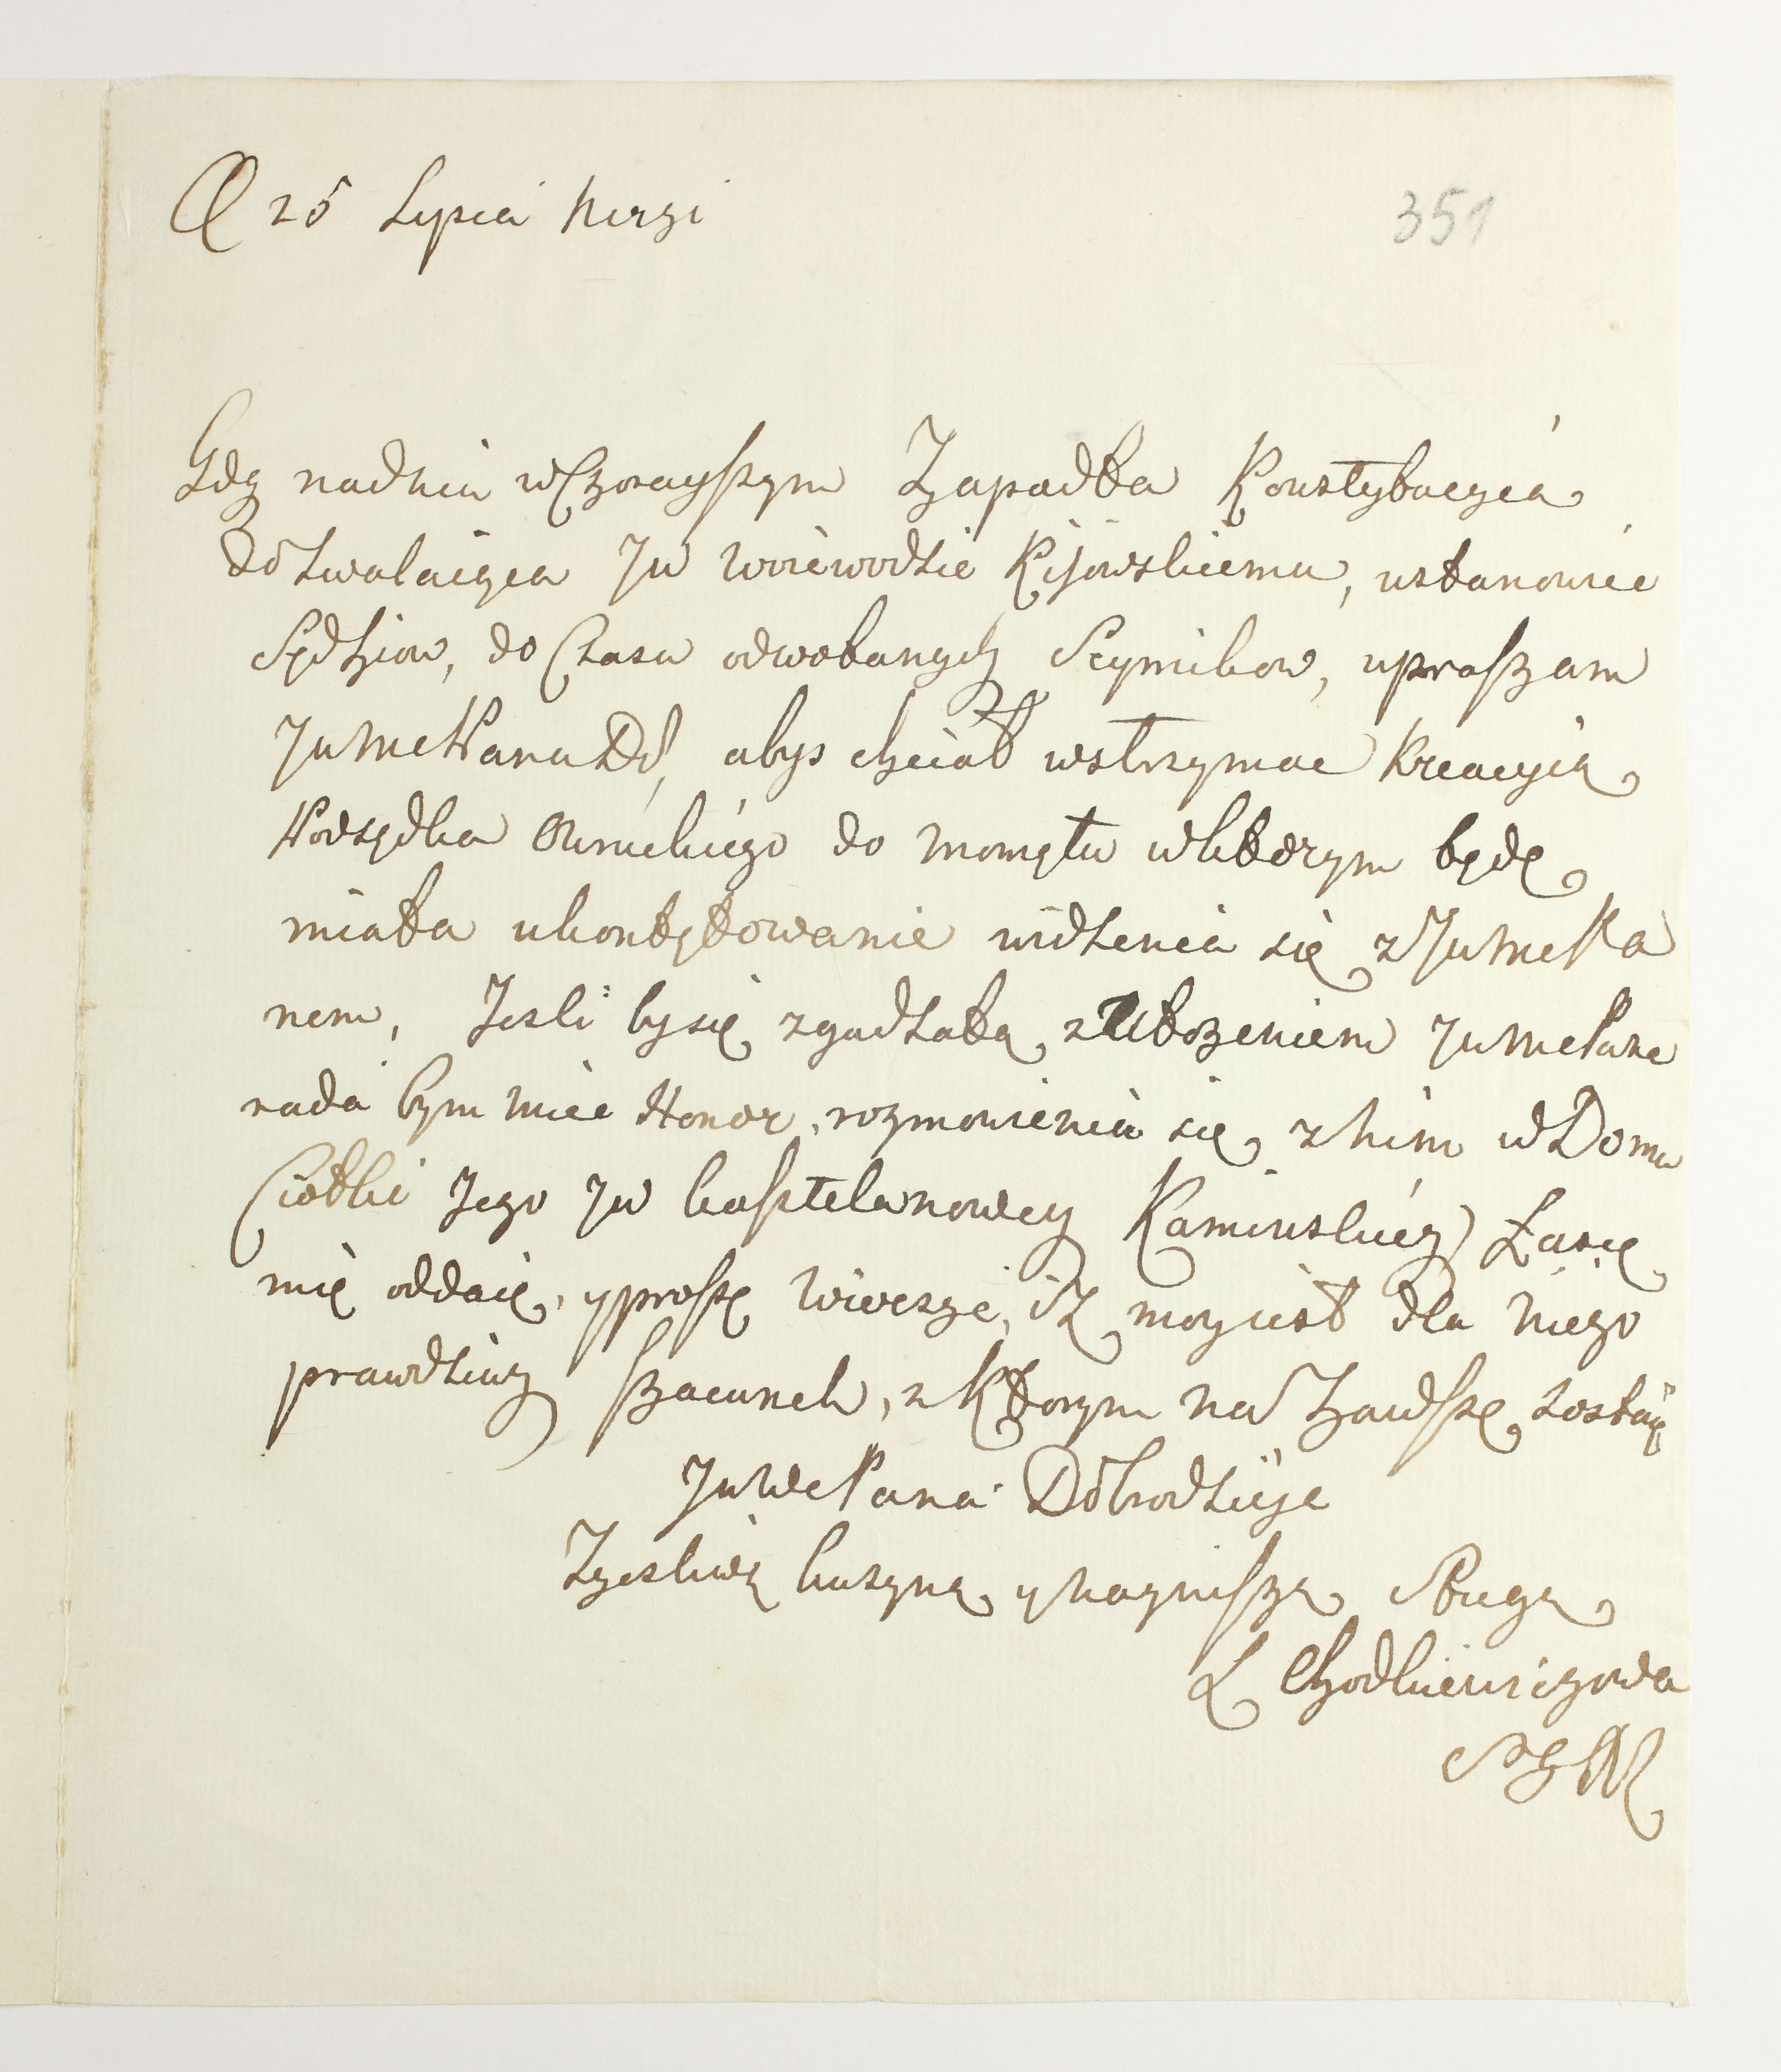 D 25 Lypca
351
Gdy nadniu wCzorayszym Zapadła Konstytucyia
dozwalaiąca JW woiewodzie Kijowskiemu, ustanowic
Sędziow, do Czasu odwołanych Seymikow, upraszam
JWWePana Dd, abys chciał wstrzymac Kreacyią
Podsędka Owruckiego do momętu wktorym będę
miała ukontętowanie widzenia się zJWWePa
nem, Jesli bysię zgadzało zUłozeniem JWWePana
rada bym miec Honor rozmowienia się z nim wDomu
Ciotki Jego JW kasztelanowey Kaminskiey Łasce
mię oddaię, yproszę wierzyc, iż moy iest dla niego
prawdziwy szacunek, z Ktorym na Zawsze zostaię
JWWePana Dobrodzieja
Zyczliwą kuzyną ynaynisszą Sługą
L Chodkiewiczowa